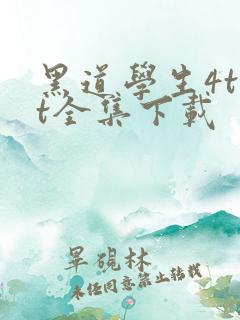 黑道學生4t
t全集下載
畢硯林
未经同意禁止转载